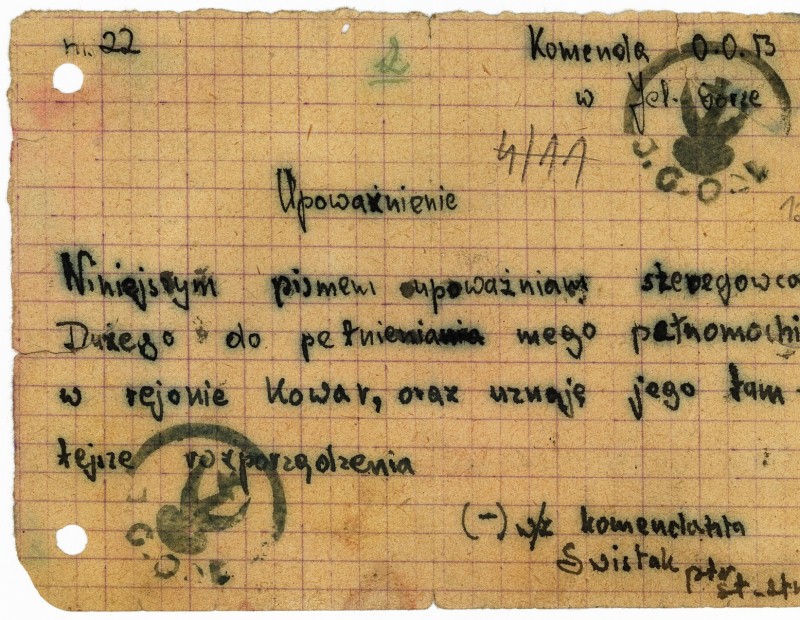 nr. 22
Komenda O.O.B
w Jel. Górze
4/11
Upoważnienie
Niniejszym pismem upoważniam szeregowca
Dużego do pełnienia mego pełnomocni
w rejonie Kowar, oraz uznaję jego tam-
tejsze rozporządzenia
(-) w/z komendanta
Świstak